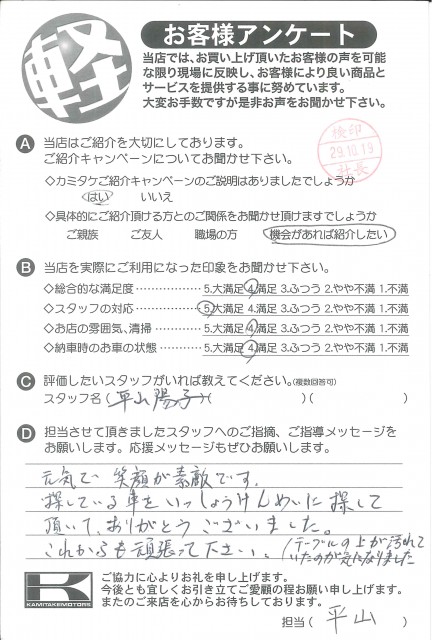 軽
お客様アンケート
当店では、お買い上げ頂いたお客様の声を可能
な限り現場に反映し、お客様により良い商品と
サービスを提供する事に努めています。
大変お手数ですが是非お声をお聞かせ下さい。
A 当店はご紹介を大切にしております。
ご紹介キャンペーンについてお聞かせ下さい。
検印
29.10.19
社長
◇カミタケご紹介キャンペーンのご説明はありましたでしょうか
はい いいえ
◇具体的にご紹介頂ける方とのご関係をお聞かせ頂けますでしょうか
ご親族 ご友人 職場の方 機会があれば紹介したい
B 当店を実際にご利用になった印象をお聞かせ下さい。
◇総合的な満足度……………5.大満足 4.満足 3.ふつう 2.やや不満 1.不満
◇スタッフの対応……………5.大満足 4.満足 3.ふつう 2.やや不満 1.不満
◇お店の雰囲気、清掃………5.大満足 4.満足 3.ふつう 2.やや不満 1.不満
◇納車時のお車の状態………5.大満足 4.満足 3.ふつう 2.やや不満 1.不満
C 評価したいスタッフがいれば教えてください。(複数回答可)
スタッフ名(平山陽子)( )( )
D 担当させて頂きましたスタッフへのご指摘、ご指導メッセージを
お願いします。応援メッセージもぜひお願いします。
元気で 笑顔が素敵です。
探している車をいっしょうけんめいに探して
頂いて、ありがとうございました。
これからも頑張って下さい。(テーブルの上が汚れて
いたのが気になりました
K
KAMITAKEMOTORS
ご協力に心よりお礼を申し上げます。
今後とも宜しくお引き立てご愛顧の程お願い申し上げます。
またのご来店を心からお待ちしております。
担当(平山 )